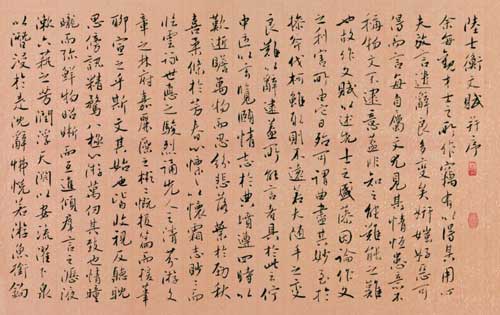 陸士衡文賦并序
余每觀才士之所作竊有以得其用心
夫放言遣辭良多變矣妍媸好惡可
得而言每自屬文尤見其情恆患意不
稱物文不逮意蓋非知之難能之難
也故作文賦以述先士之盛藻因論作文
之利害所由他日殆可謂曲盡其妙至於
操斧伐柯雖取則不遠若夫隨手之變
良難以辭逮蓋所能言者具於此云佇
中區以玄覽頤情志於典墳遵四時以
歎逝瞻萬物而思紛悲落葉於勁秋
喜柔條於芳春心懍懍以懷霜志眇眇而
臨雲詠世德之駿烈誦先人之清芬游文
章之林府嘉麗藻之彬彬慨投篇而援筆
聊宣之乎斯文其始也皆收視反聽耽
思傍訊精騖八極心游萬仞其致也情曈
曨而彌鮮物昭晰而互進傾群言之瀝液
漱六藝之芳潤浮天淵以安流濯下泉
以潛浸於是沈辭怫悅若游魚銜鉤